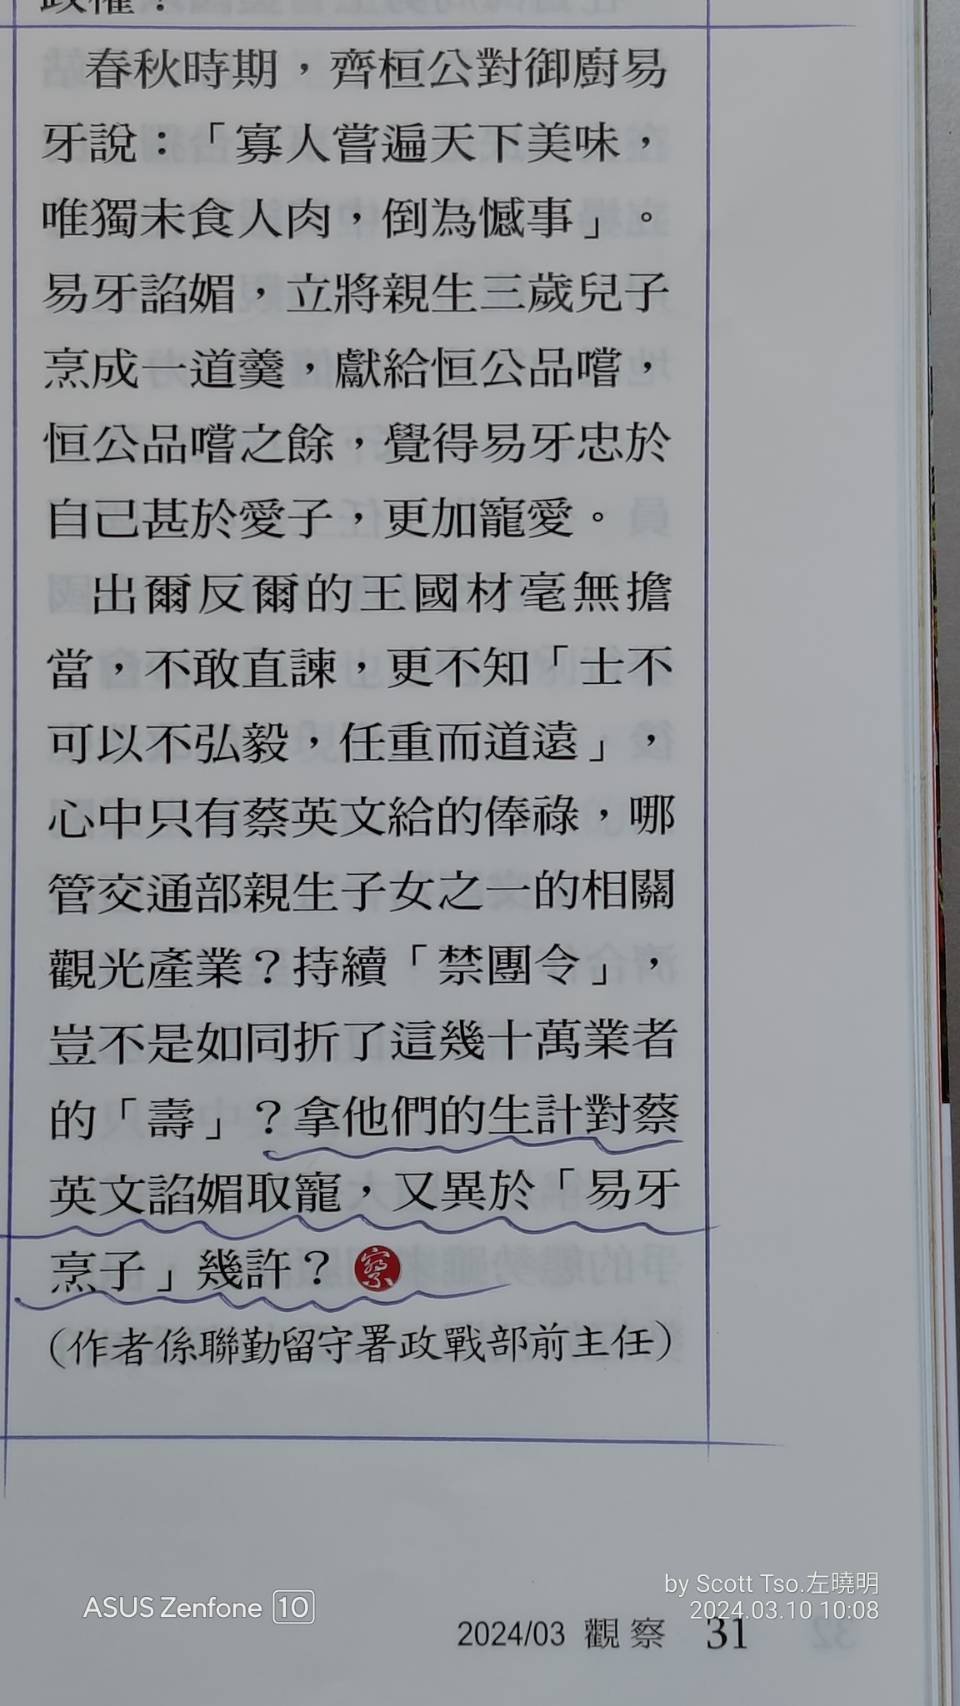 政權？
春秋時期，齊桓公對御廚易
牙說：「寡人嘗遍天下美味，
唯獨未食人肉，倒為憾事」。
易牙諂媚，立將親生三歲兒子
烹成一道羹，獻給恒公品嚐，
恒公品嚐之餘，覺得易牙忠於
自己甚於愛子，更加寵愛。
出爾反爾的王國材毫無擔
當，不敢直諫，更不知「士不
可以不弘毅，任重而道遠」，
心中只有蔡英文給的俸祿，哪
管交通部親生子女之一的相關
觀光產業？持續「禁團令」，
豈不是如同折了這幾十萬業者
的「壽」？拿他們的生計對蔡
英文諂媚取寵，又異於「易牙
烹子」幾許？察
（作者係聯勤留守署政戰部前主任）
ASUS Zenfone 10
by Scott Tso.左曉明
2024.03.10 10:08
2024/03 觀察 31